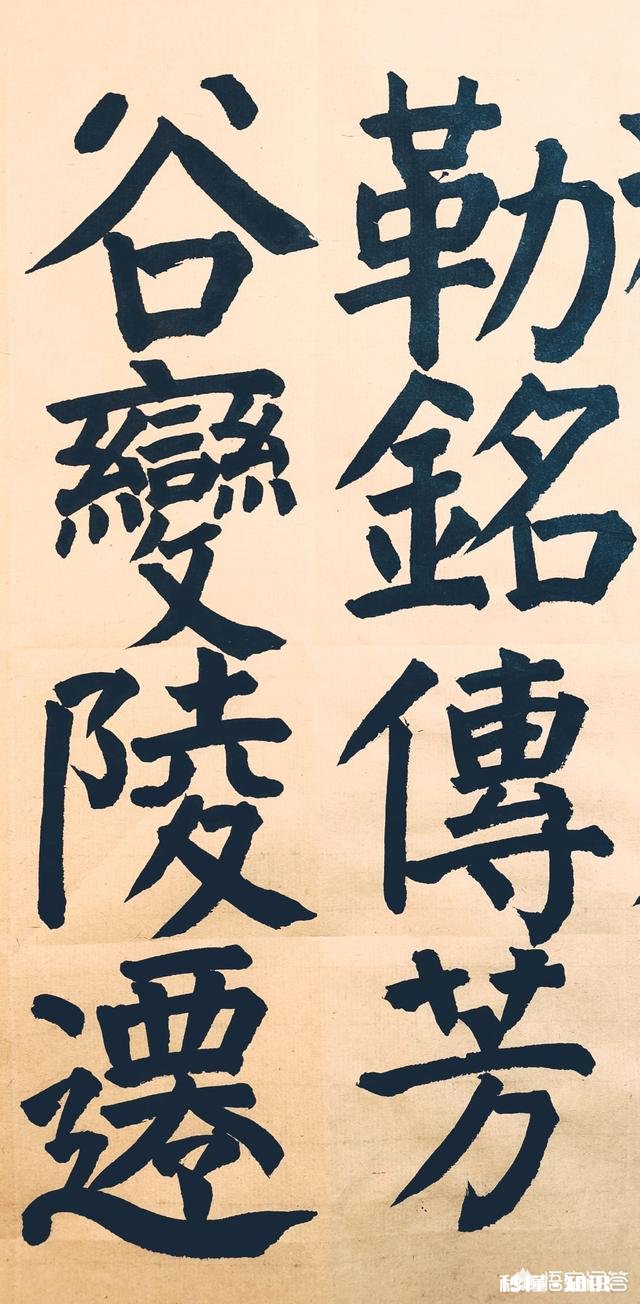 勒銘傳芳
谷變陵遷